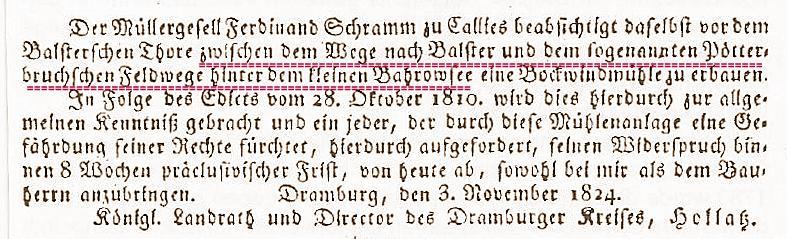 Der Müllergesell Ferdinand Schramm zu Callies beabsichtigt daselbst vor dem
Balsterschen Thore zwischen dem Wege nach Balster und dem sogenannten Pötter-
bruchschen Feldwege hinter dem kleinen Bahrowsee eine Bockwindmühle zu erbauen.
In Folge des Edicts vom 28. Oktober 1810. wird dies hierdurch zur allge-
meinen Kenntniß gebracht und ein jeder, der durch diese Mühlenanlage eine Ge-
fährdung seiner Rechte fürchtet, hierdurch aufgefordert, seinen Widerspruch bin-
nen 8 Wochen präclusivischer Frist, von heute ab, sowohl bei mir als dem Bau-
herrn anzubringen. Dramburg, den 3. November 1824.
Königl. Landrath und Director des Dramburger Kreises, Hollatz.